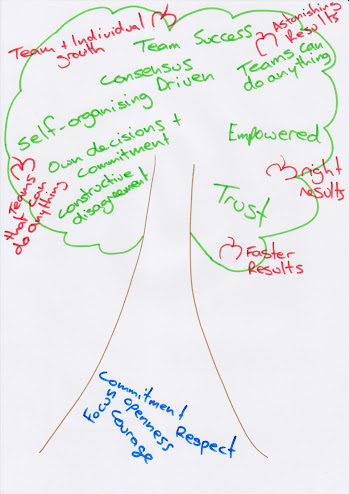 Team + Individual
growth
Team Success
Astonishing
Results
Teams can
do anything
Consensus
Driven
self-organising
own decisions +
commitment
constructive
disagreement
Empowered
Trust
Teams
that can
do anything
right
results
Faster
Results
Commitment
Focus
openness
Courage
Respect